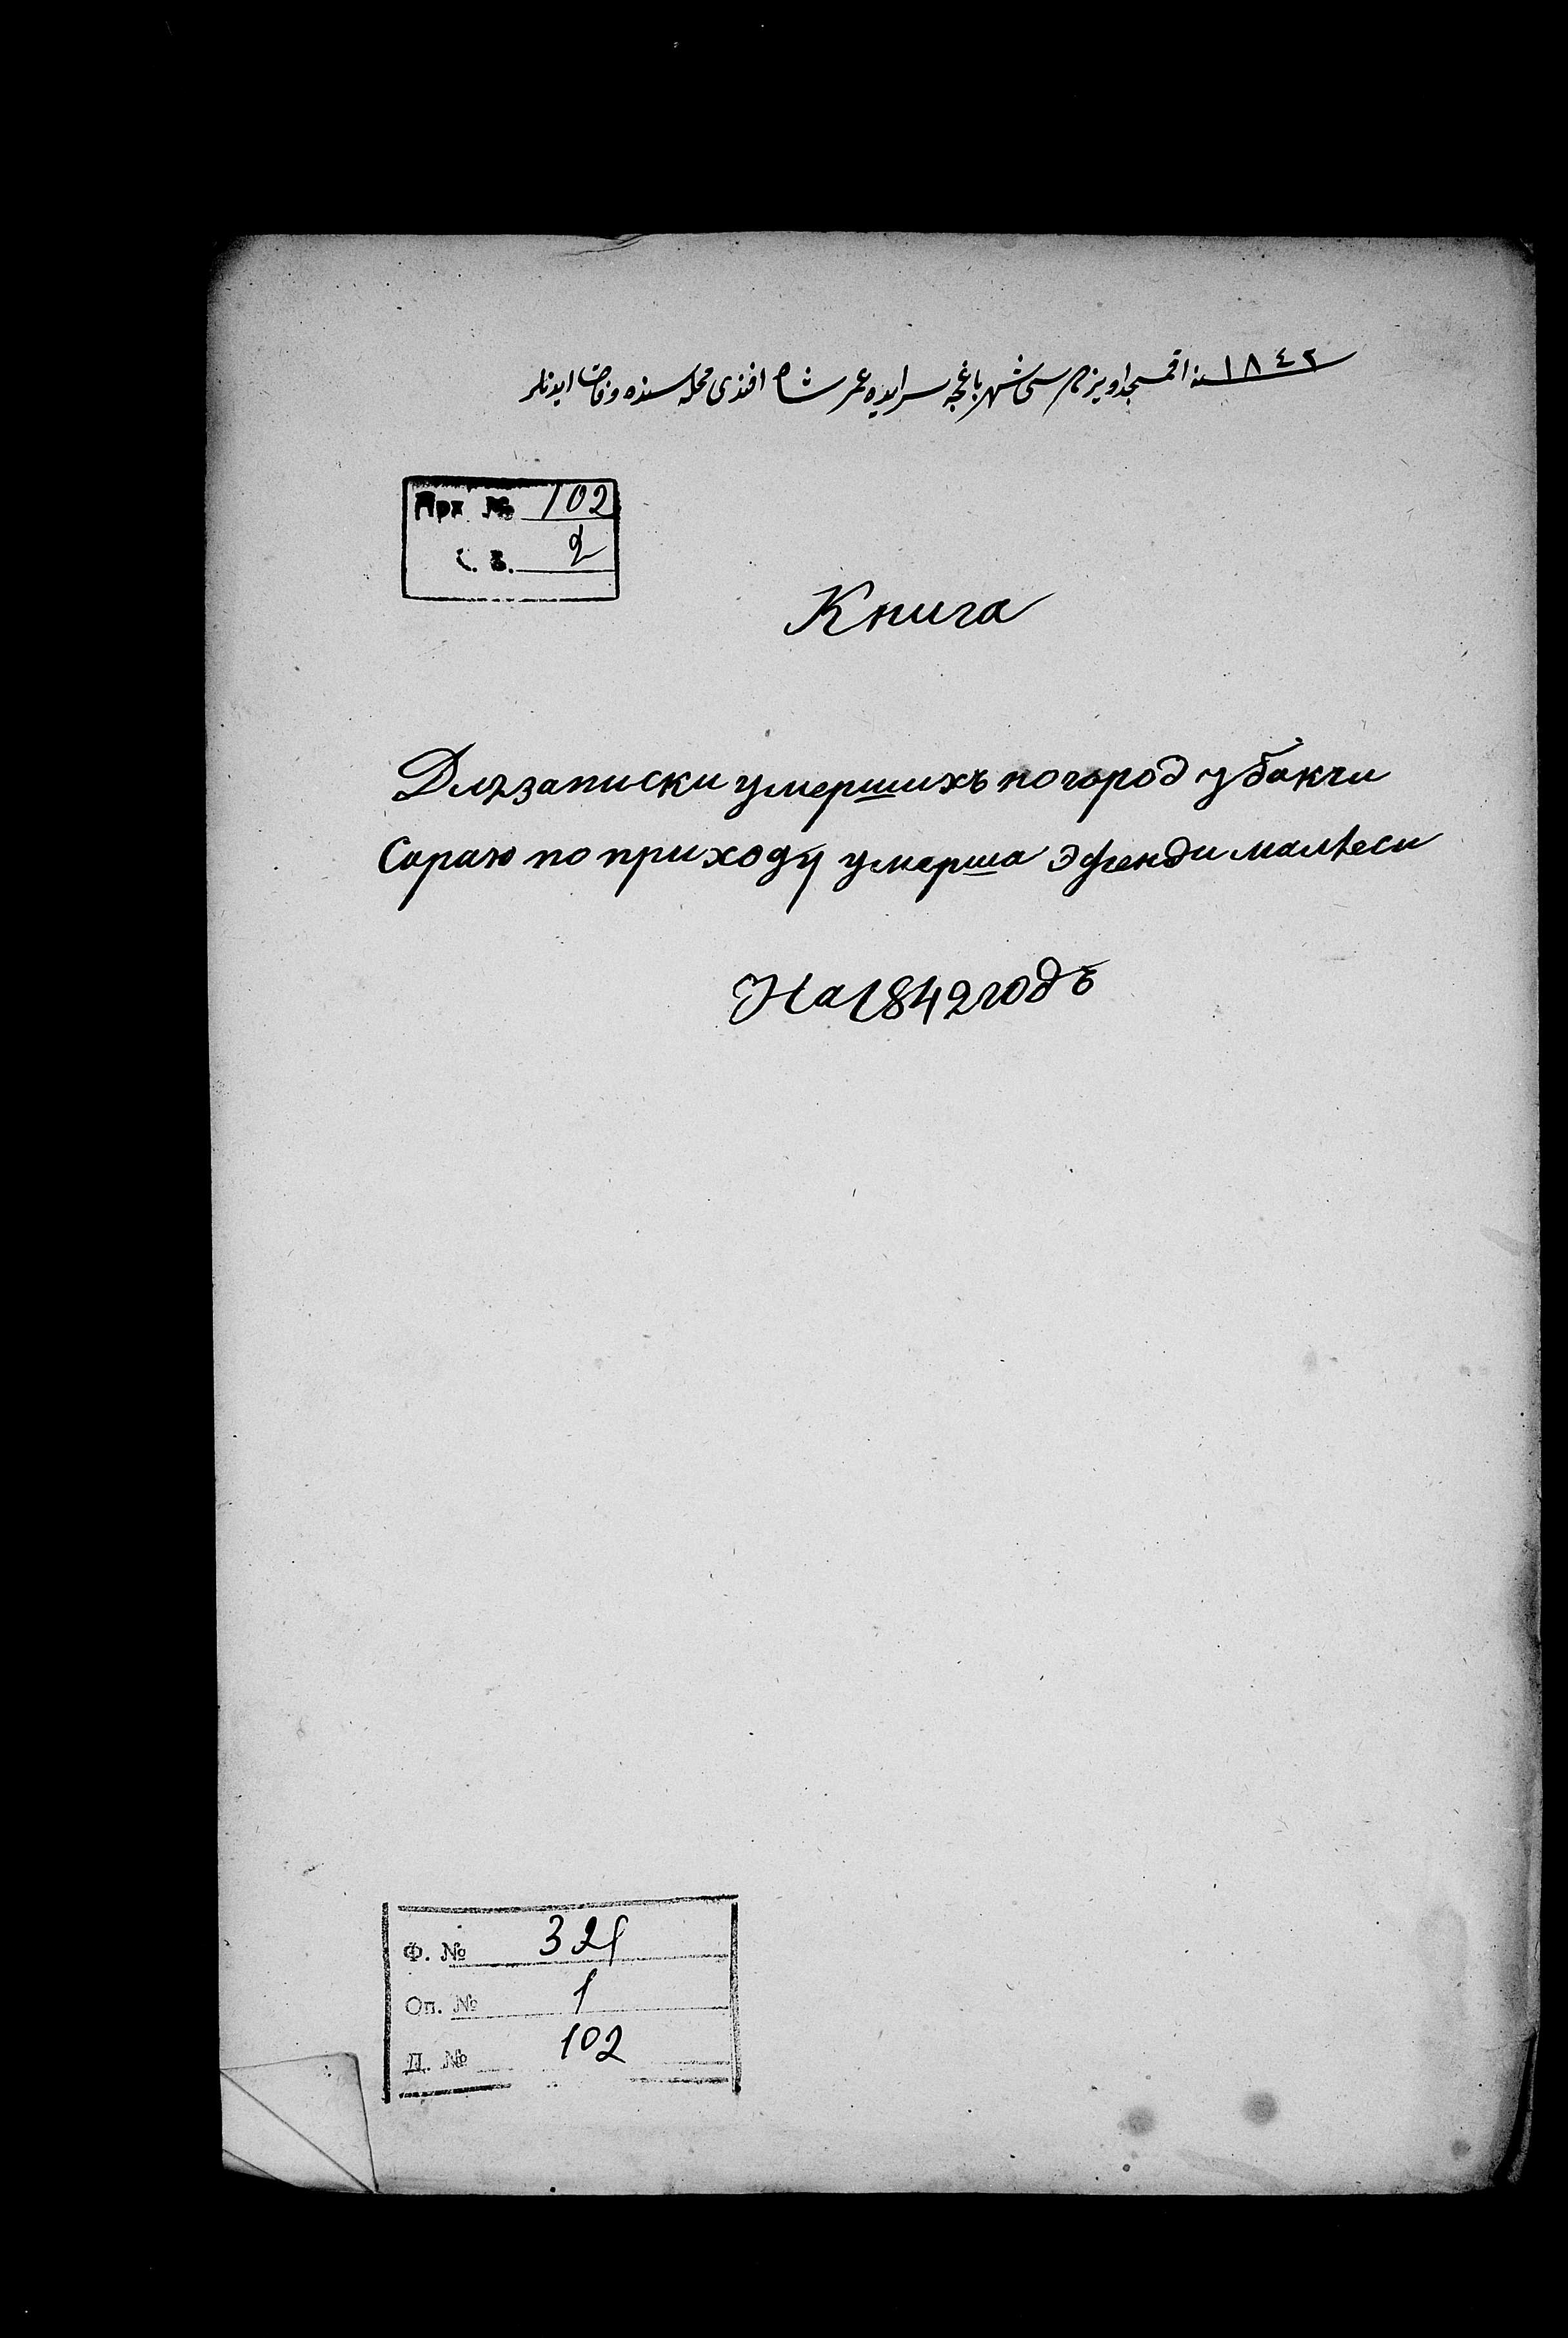 ١٨٤٢ سنه اقمسجد اویزنڭ شهر باغچه سرایده عمر شاه افندی محله سنده وفات ایدنلر
Арх № 102
С. В. 2
Книга
Для записки умершихъ по город у бакчи
Сараю по приходу умерша Эфенди малѣеси
На 1842 годъ
Ф. № 321
Оп. № 1
Д. № 102